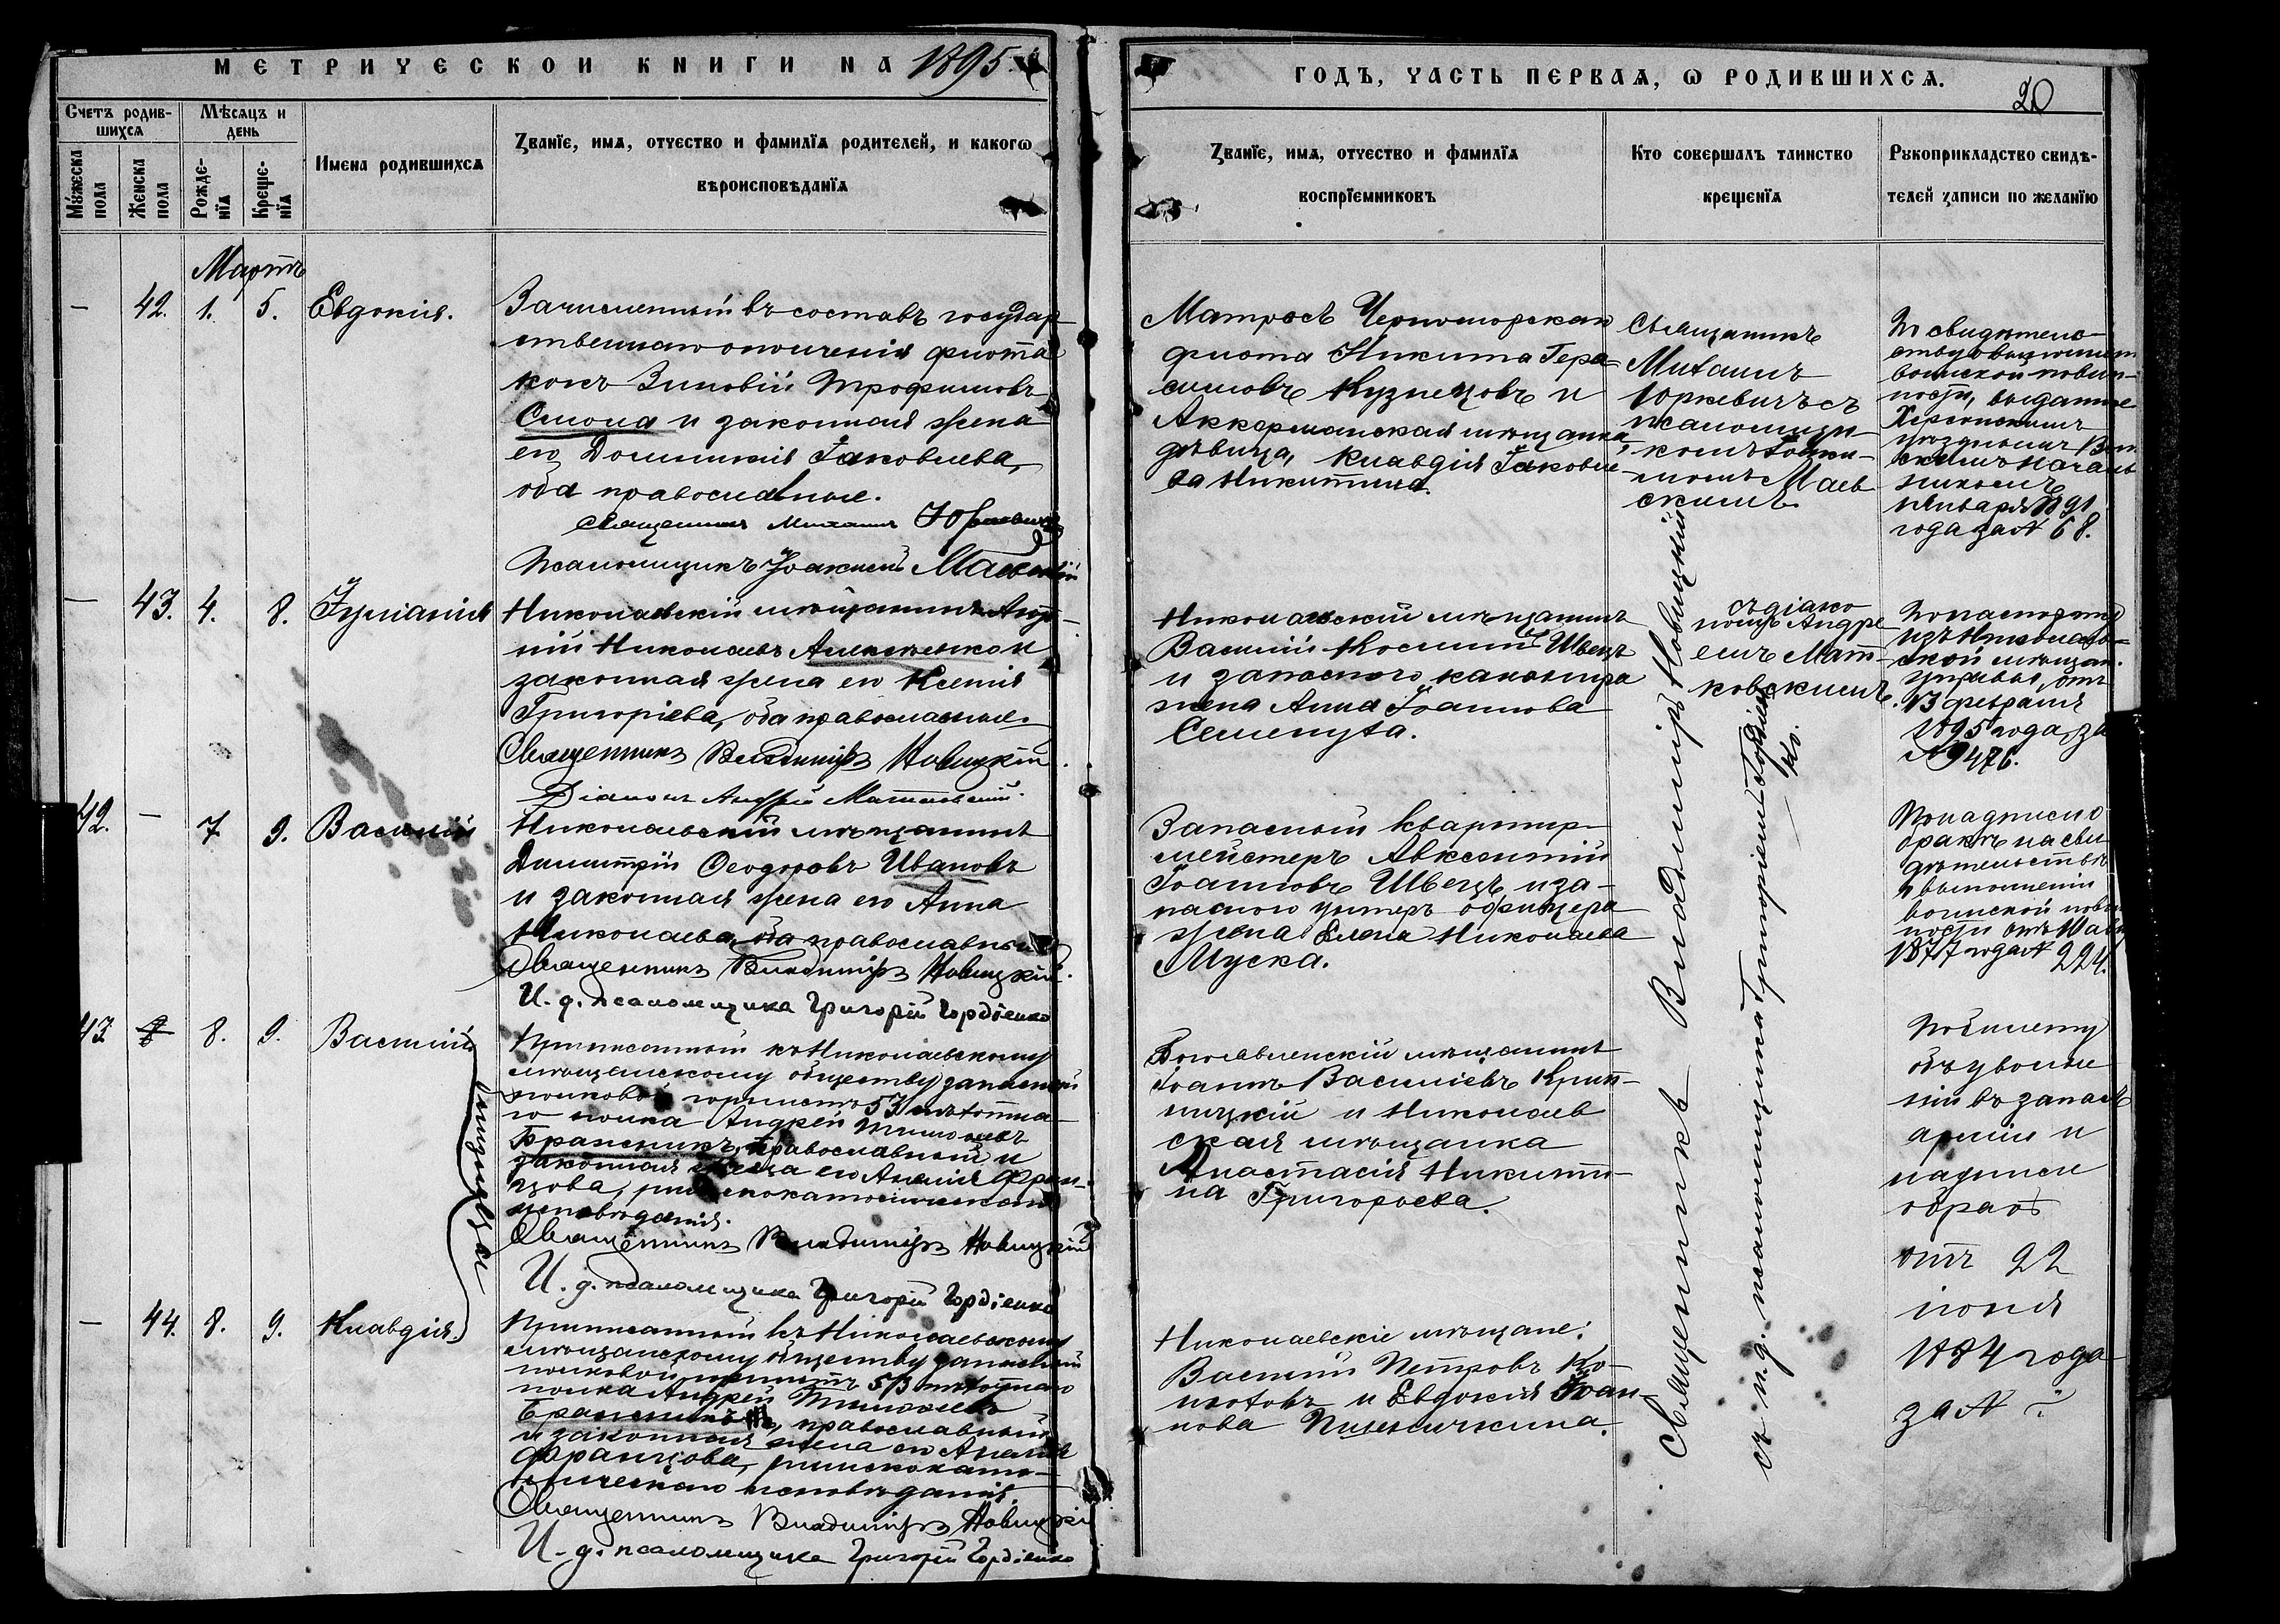 МЕТРИЧЕСКОЙ КНИГИ НА 1895
ГОДЪ, ЧАСТЬ ПЕРВАЯ, Ѡ РОДИВШИХСЯ.
20
Счетъ родив-
шихся
Мужеска
пола
Женска
пола
Мѣсяцъ и
день
Рожде-
нїя
Креще-
нїя
Имена родившихся
Званїе, имя, отчество и фамилїя родителей, и какогѡ
вѣроисповѣданїя
Званїе, имя, отчество и фамилїя
воспрїемниковъ
Кто совершалъ таинство
крещенїя
Рукоприкладство свидѣ-
телей записи по желанїю
Мартъ
— 42. 1. 5. Евдокія.
Зачисленный въ составъ государ-
ственнаго ополченія флота
Зиновій Трофимовъ
Смола и законная жена
его Домникія Іаковлева,
оба православные.
Священникъ Михаилъ Юркевичъ
Псаломщикъ Іоакимъ Маевскій
Матросъ Черноморскаго
флота Никита Гера-
симовъ Кузнецовъ и
Аккерманская мѣщанка,
дѣвица, Клавдія Іаковле-
ва Никитина.
Священникъ
Михаилъ
Юркевичъ съ
псаломщи-
комъ Іоаки-
момъ Маев
скимъ.
По свидѣтель-
ству о выполнен
воинской повин-
ности, выданное
Херсонскимъ
уѣзднымъ Воин
скимъ началь
никомъ
Января 1891
года за № 68.
— 43. 4. 8. Іуліанія
Николаевскій мѣщанинъ Анто-
ній Николаевъ Алексѣенко и
законная жена его Ксенія
Григоріева, оба православные.
Священникъ Владиміръ Новицкій.
Діаконъ Андрей Матковскій.
Николаевскій мѣщанинъ
Василій Косминъ Швецъ
и запаснаго канонира
жена Анна Іоаннова
Семенута.
съ діако
номъ Андре
емъ Мат-
ковскимъ.
По паспорту
изъ Николаев-
ской мѣщан.
управы, отъ
13 февраля
1895 года, за
№ 9476.
42. — 7 9. Василій
Николаевскій мѣщанинъ
Димитрій Ѳеодоровъ Ивановъ
и законная жена его Анна
Николаева, оба православные
Священникъ Владиміръ Новицкій.
И. д. псаломщика Григорій Гордіенко
Запасный квартир-
мейстеръ Авксентій
Іоанновъ Швецъ и за-
паснаго унтеръ офицера
жена Елена Николаева
Муска.
По надписи о
бракѣ на сви
дѣтельствѣ
о выполненіи
воинской повин
ности отъ 10
1877 года № 224.
43 8. 9. Василій
близнецы
Приписанный къ Николаевскому
мѣщанскому обществу запасный
полковой горнистъ 53 пѣхотна-
го полка Андрей Тимоѳеевъ
Бранецкій, православный и
законная жена его Амалія Фран-
цова, римско-католическаго
исповѣданія.
Священникъ Владиміръ Новицкій
И. д. псаломщика Григорій Гордіенко
Богоявленскій мѣщанинъ
Іоаннъ Василіевъ Крип-
ницкій и Николаев
ская мѣщанка
Анастасія Никити-
на Григорьева.
По билету
объ увольне
ніи въ запасъ
арміи и
надписи
о бракѣ
отъ 22
іюня
1884 года
за № ?
Священникъ Владиміръ Новицкій
съ и. д. псаломщика Григоріемъ Гордіен-
ко.
— 44. 8. 9. Клавдія.
Приписанный къ Николаевскому
мѣщанскому обществу запасный
полковой горнистъ 53 пѣхотнаго
полка Андрей Тимоѳеевъ
православный
и законная жена его Амалія
Францова, римскокато-
лическаго исповѣданія.
Священникъ Владиміръ Новицкій
И. д. псаломщика Григорій Гордіенко
Николаевскіе мѣщане:
Василій Петровъ Ко-
и Евдокія Іоан-
нова Пшеничкина.